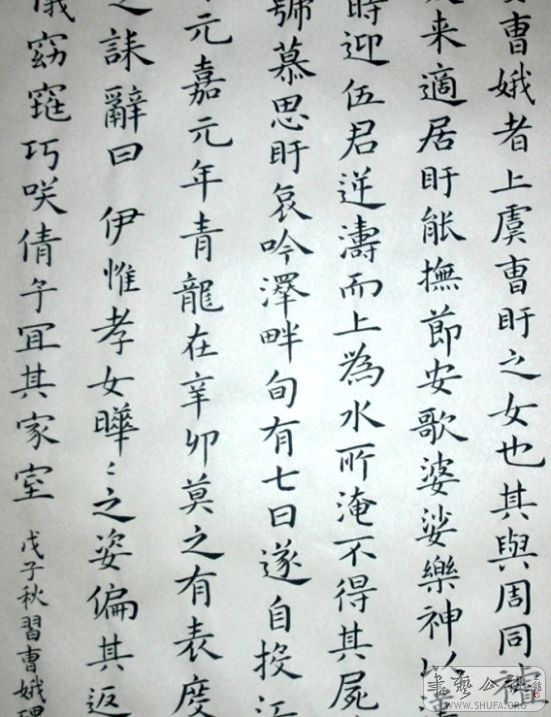 曹娥者上虞曹盱之女也其與周同
来適居盱能撫節安歌婆娑樂神以
時迎伍君逆濤而上為水所淹不得其屍
號慕思盱哀吟澤畔旬有七日遂自投江
元嘉元年青龍在辛卯莫之有表度
之誄辭曰 伊惟孝女曄〻之姿偏其返
儀窈窕巧咲倩兮冝其家室
戊子秋習曹娥碑
WWW.SHUFA.ORG